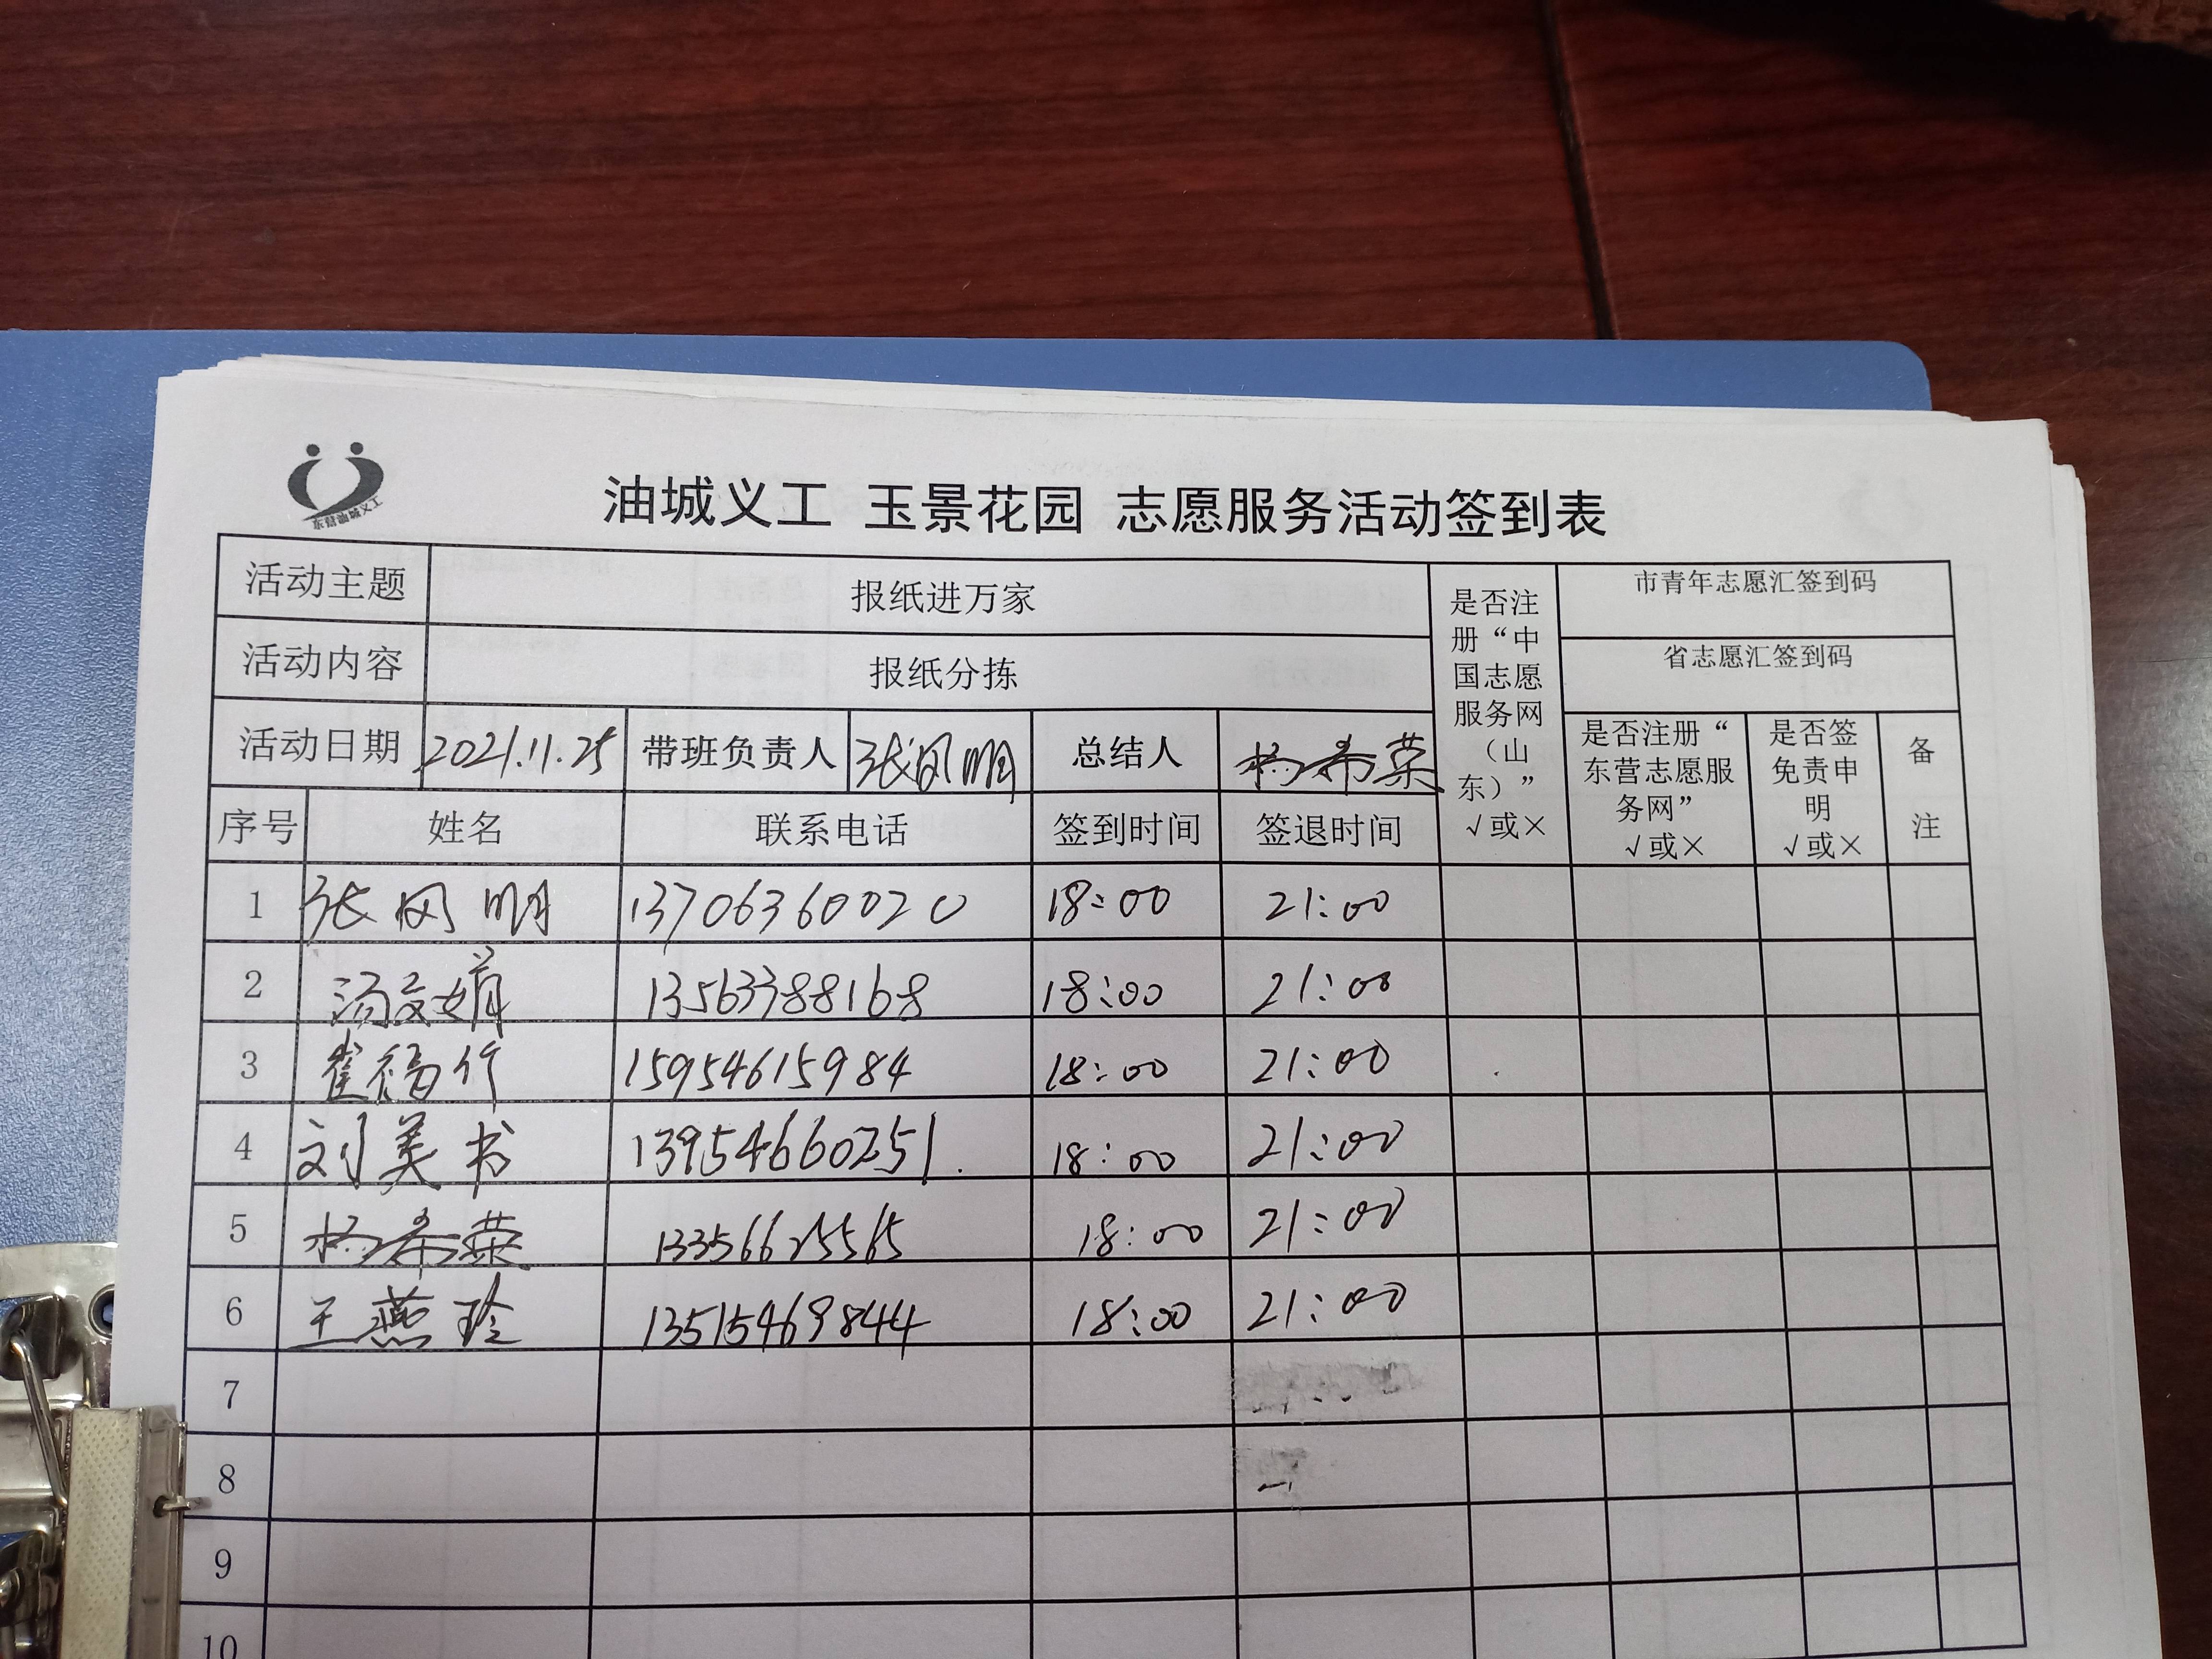 东营油城义工
油城义工 玉景花园 志愿服务活动签到表
活动主题 报纸进万家 是否注册“中国志愿服务网（山东）”√或× 市青年志愿汇签到码
活动内容 报纸分拣 省志愿汇签到码
活动日期 2021.11.25 带班负责人 张凤明 总结人 杨希荣 是否注册“东营志愿服务网”√或× 是否签免责申明√或× 备注
序号 姓名 联系电话 签到时间 签退时间
1 张凤明 13706360020 18:00 21:00
2 汤文娟 13563388168 18:00 21:00
3 崔福竹 15954615984 18:00 21:00
4 刘美书 13954660251. 18:00 21:00
5 杨希荣 13356625565 18:00 21:00
6 王燕玲 13515469844 18:00 21:00
7
8
9
10